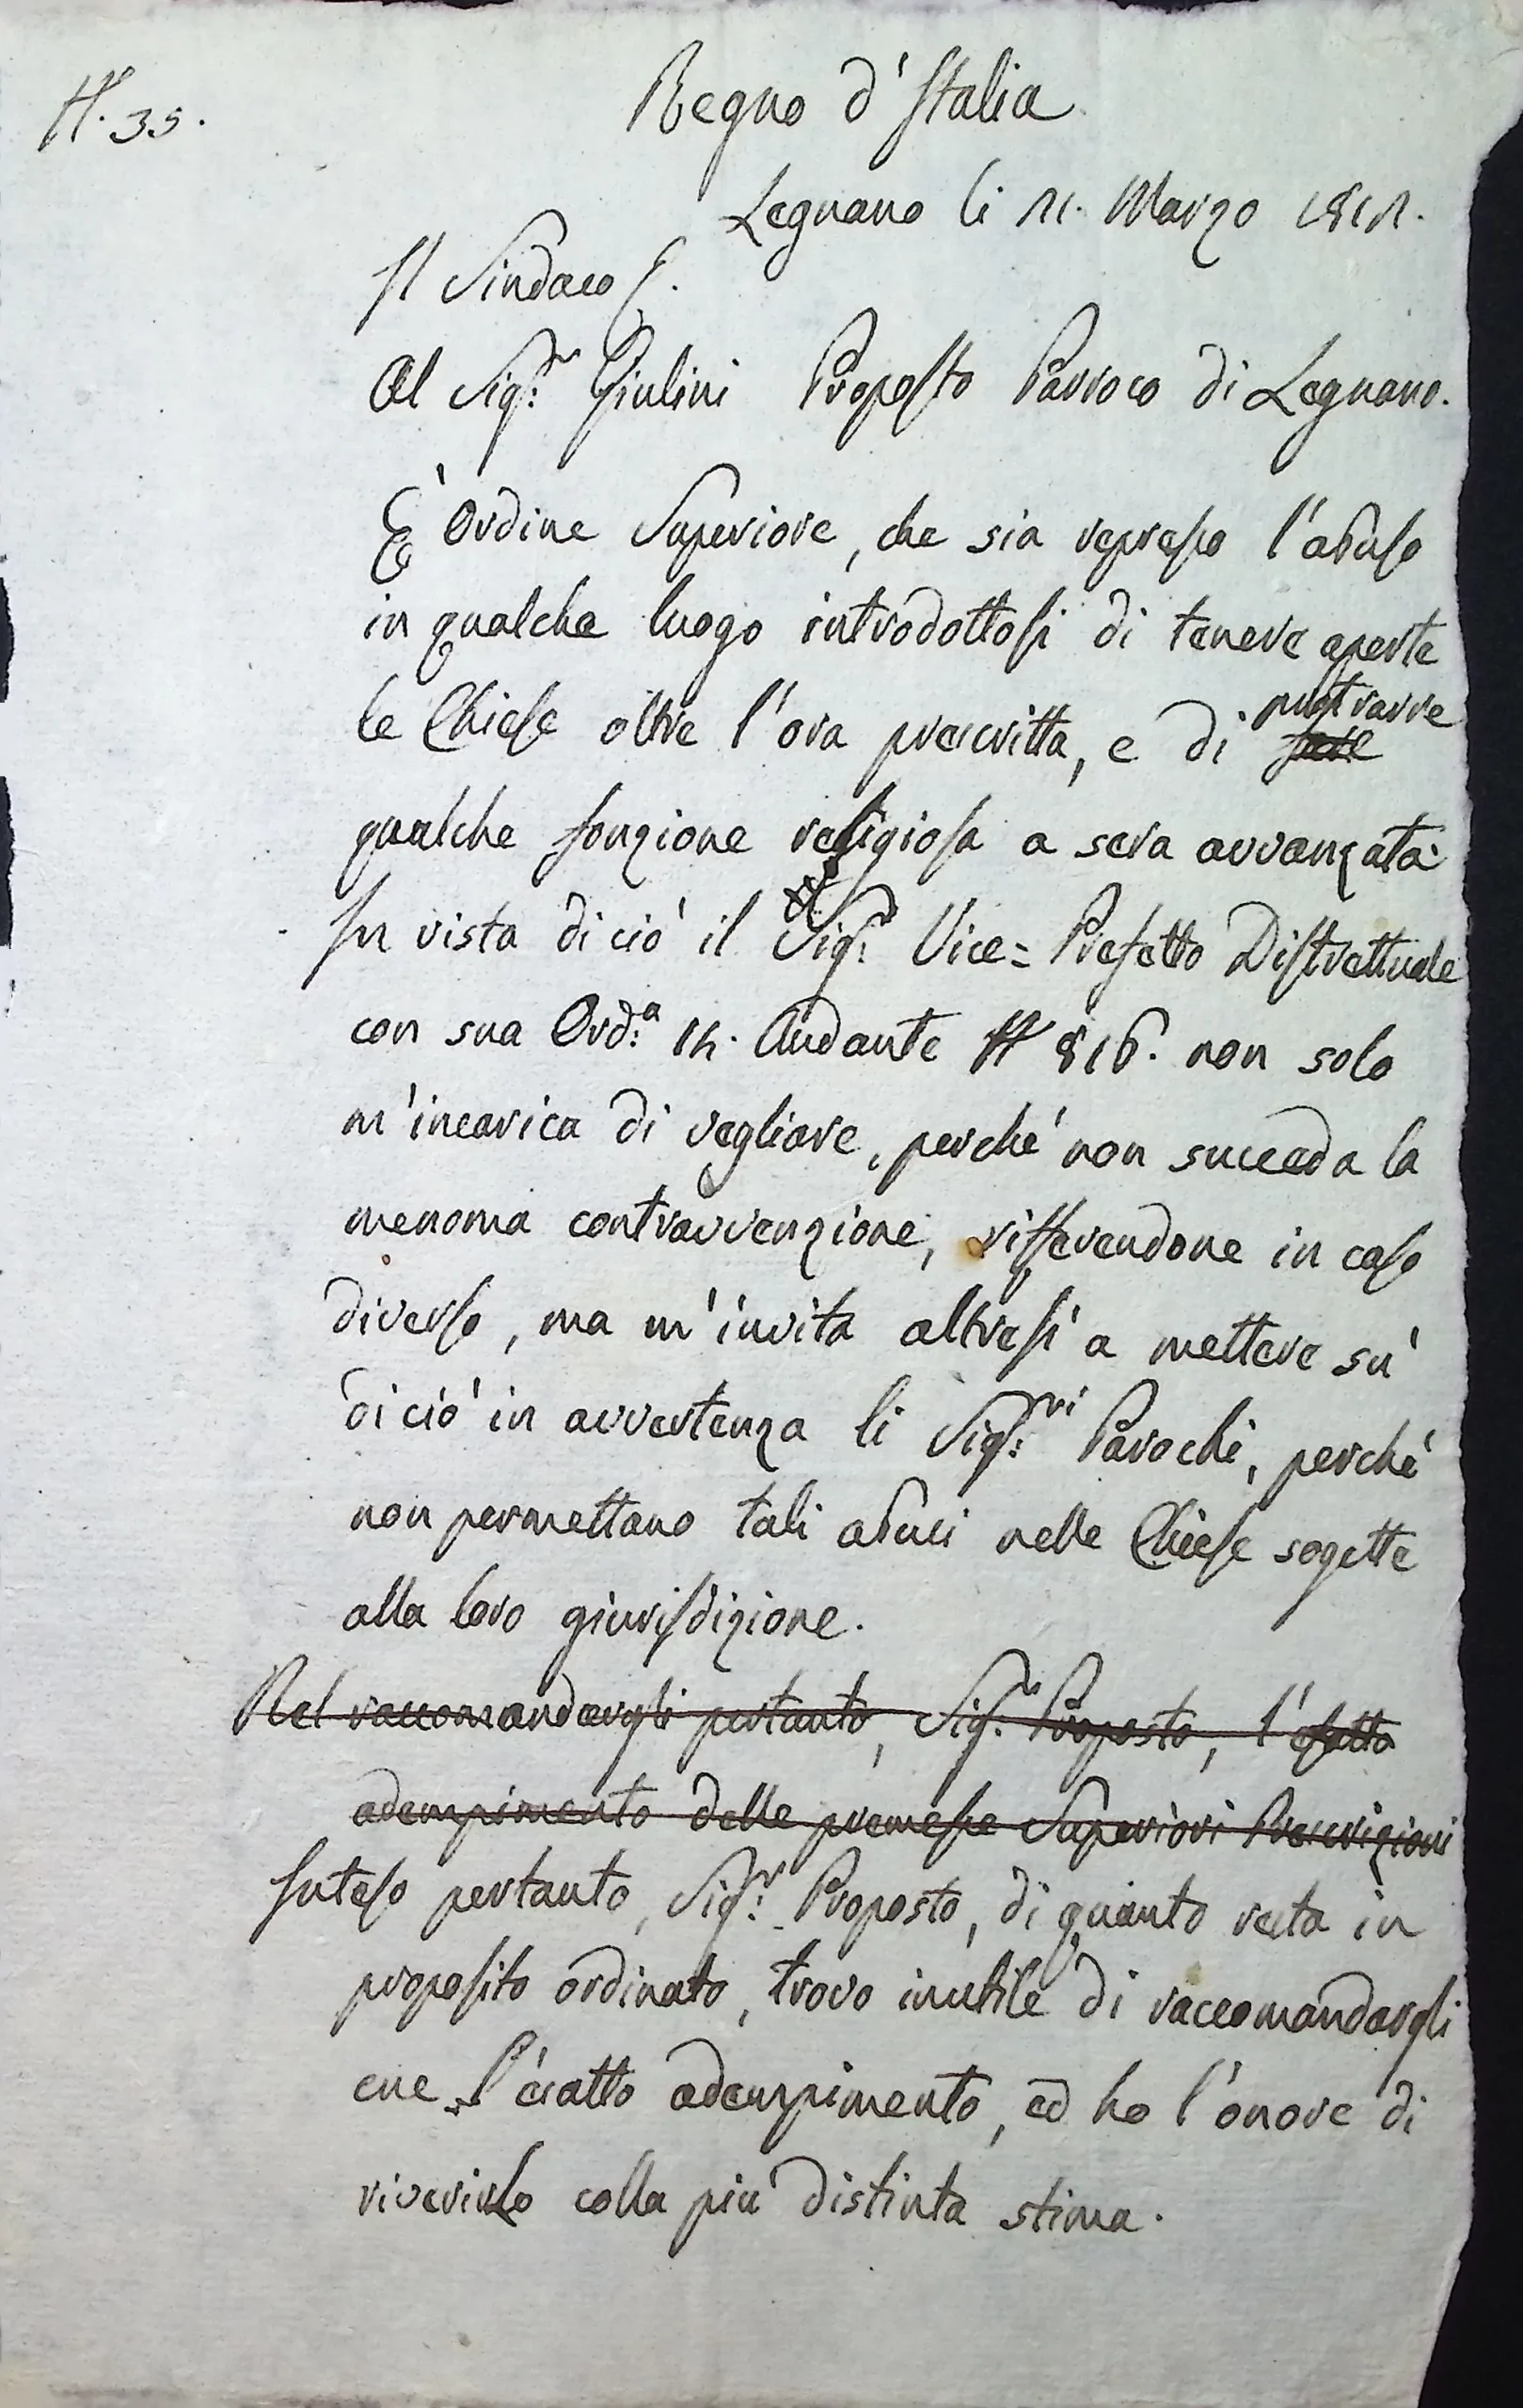 N. 35.
Regno d'Italia
Legnano li 21. Marzo 1812.
Il Sindaco
Al Sig.r Giulini Proposto Parroco di Legnano.
È Ordine Superiore, che sia represso l'abuso
in qualche luogo introdottosi di tenere aperte
le Chiese oltre l'ora prescritta, e di protrarre
qualche fonzione religiosa a sera avvanzata.
In vista di ciò il Sig.r Vice=Prefetto Distrettuale
con sua Ord.a 14. Andante N 816. non solo
m'incarica di vegliare, perché non succeda la
menoma contravvenzione, rifferendone in caso
diverso, ma m'invita altresì a mettere sù
di ciò in avvertenza li Sig.ri Parochi, perché
non permettano tali abusi nelle Chiese sogette
alla loro giurisdizione.
Nel raccomandargli pertanto, Sig.r Proposto, l'esatto
adempimento delle premesse Superiori Prescrizioni
Inteso pertanto, Sig.r Proposto, di quanto resta in
proposito ordinato, trovo inutile di raccomandargli
ene l'esatto adempimento, ed ho l'onore di
riverirlo colla più distinta stima.